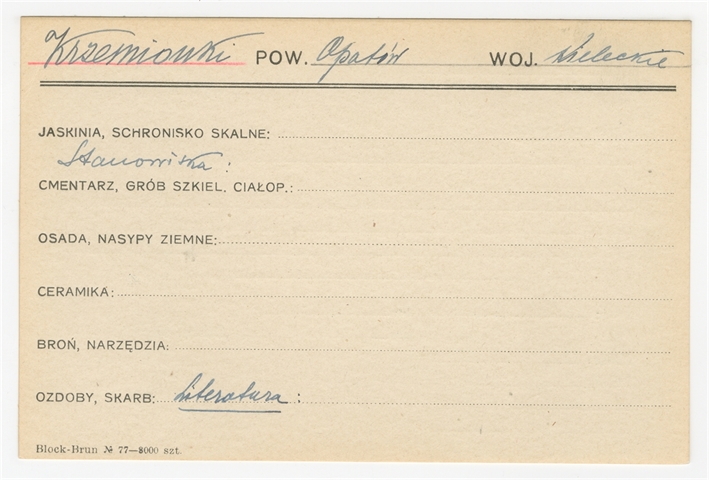 Krzemionki POW. Opatów WOJ. Kieleckie
JASKINIA, SCHRONISKO SKALNE:
Stanowiska:
CMENTARZ, GRÓB SZKIEL. CIAŁOP.:
OSADA, NASYPY ZIEMNE:
CERAMIKA:
BROŃ, NARZĘDZIA:
OZDOBY, SKARB: Literatura :
Block-Brun № 77—8000 szt.